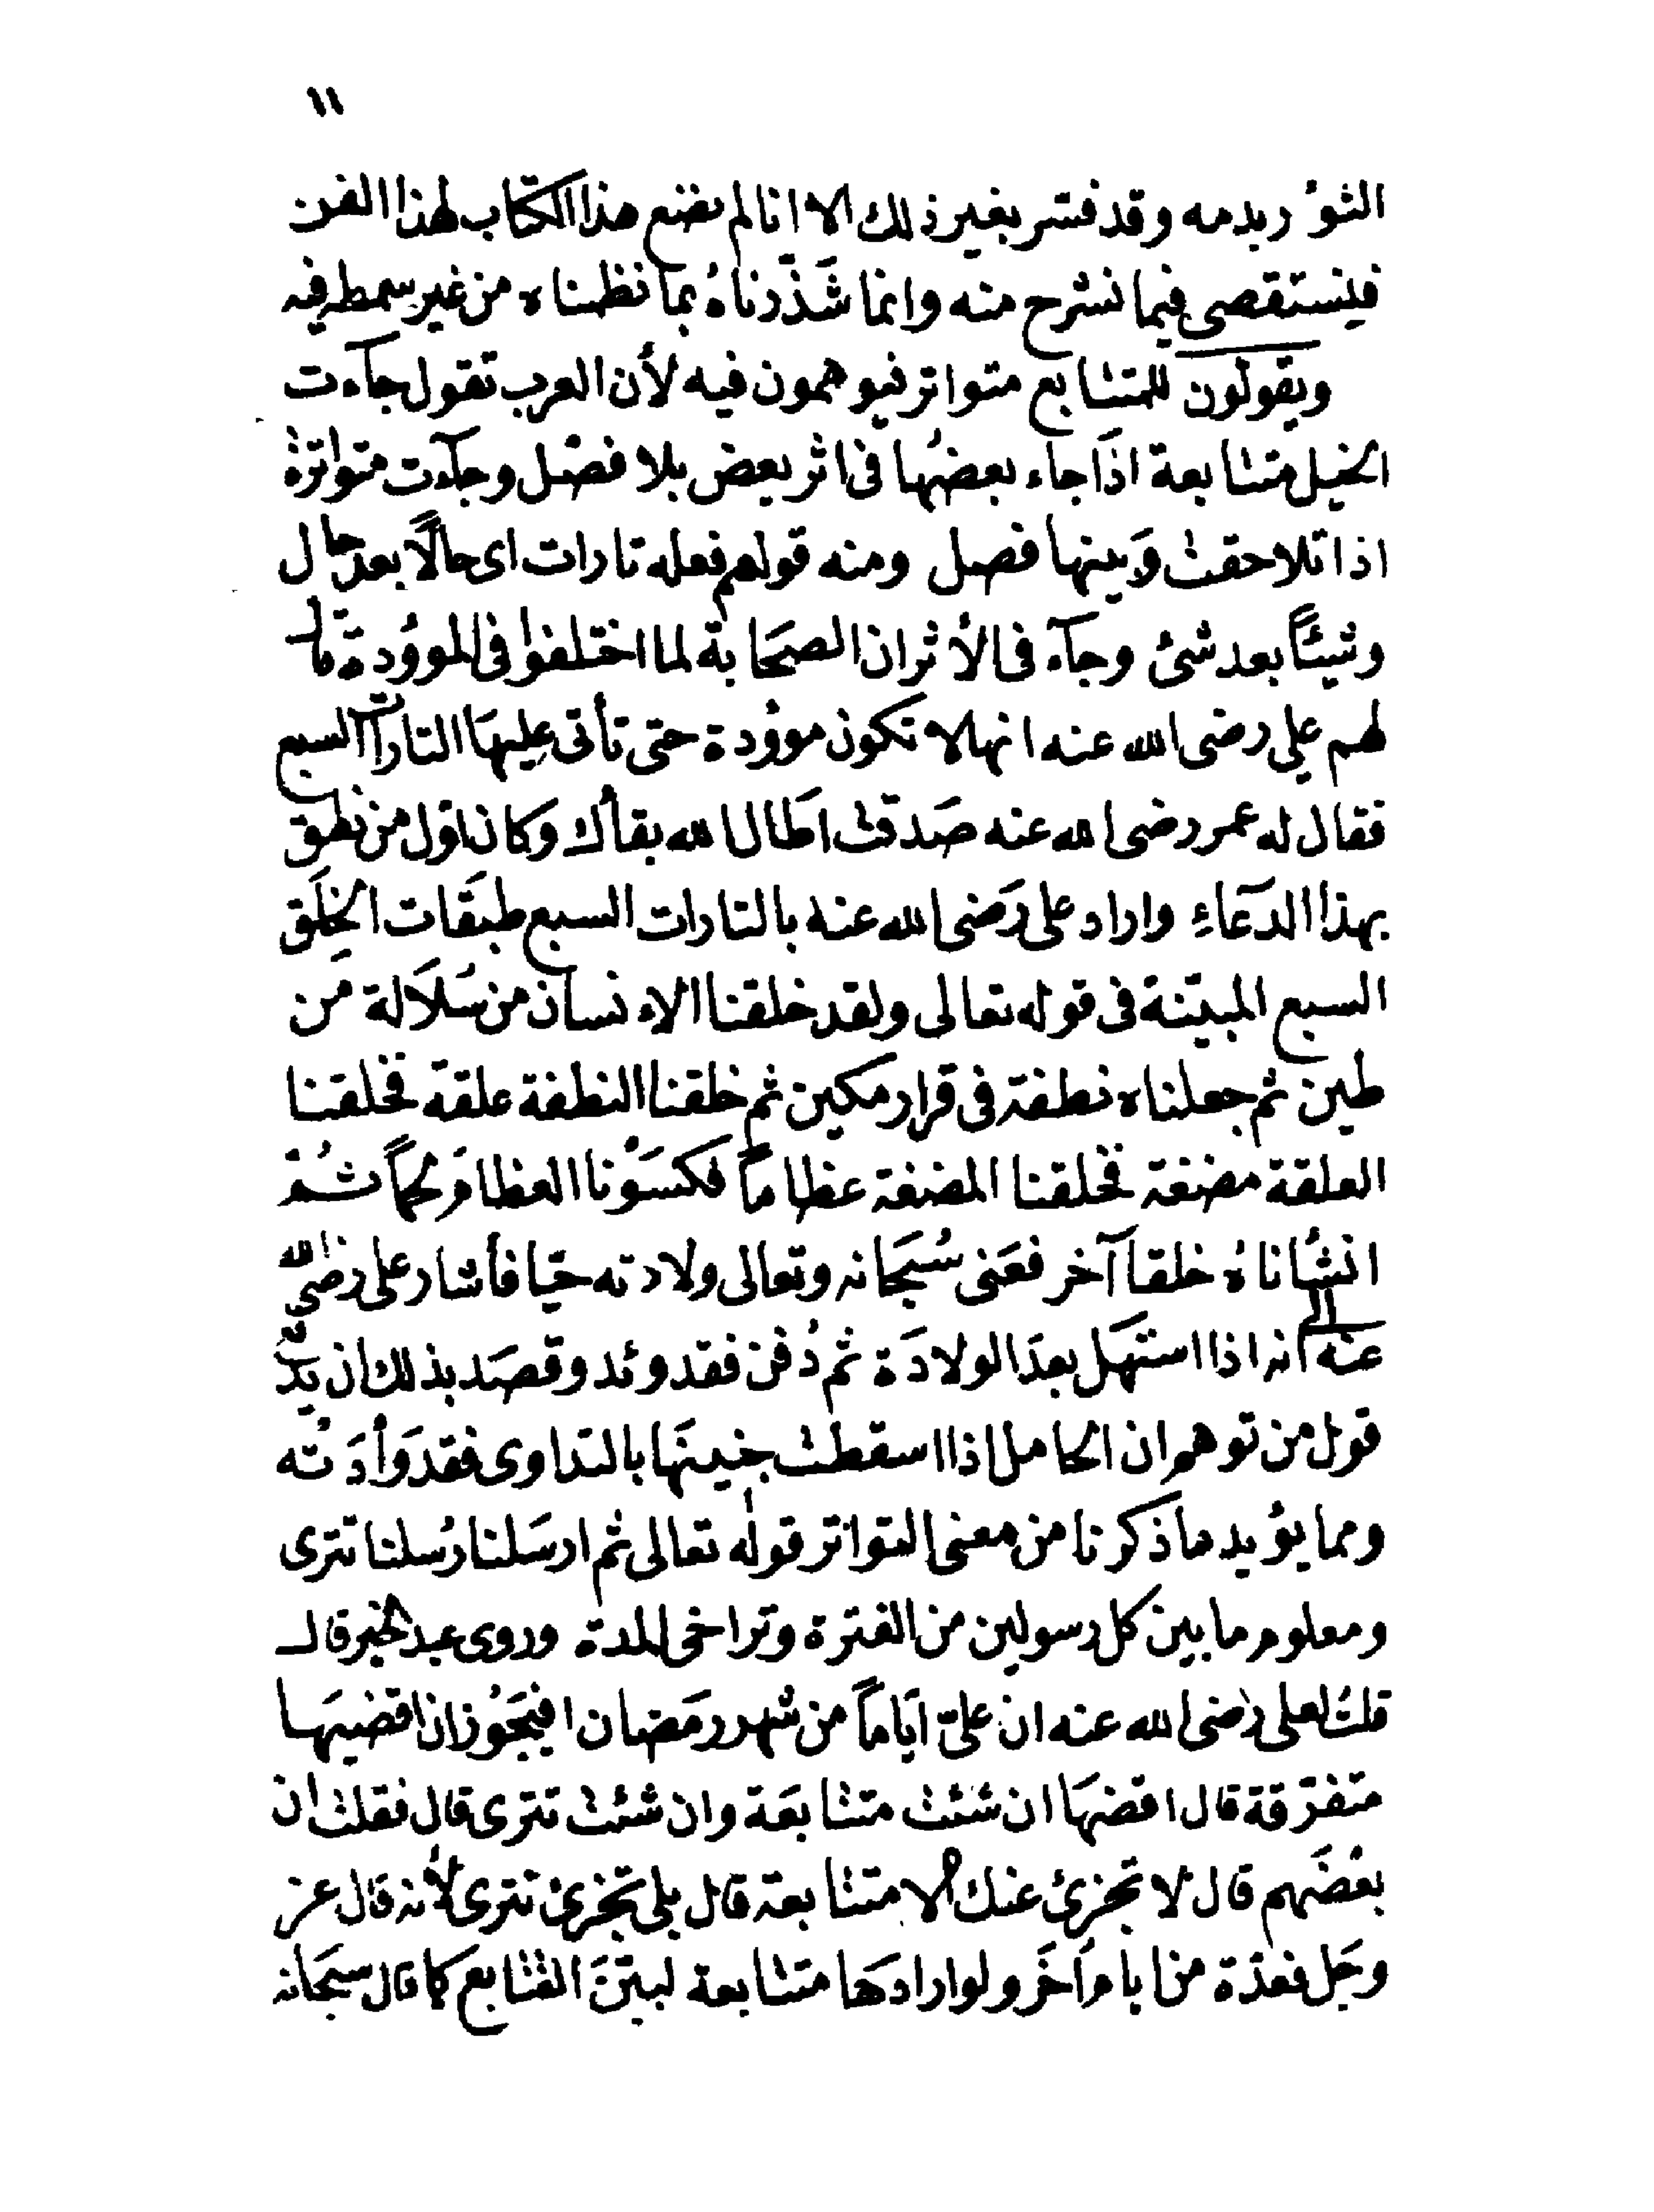 ١١
الثوُر بدمه وقد فسّر بغير ذلك الا انا لم نضع هذا الكتاب لهذا الفن
فيستقصى فيما نشرح منه وانما شَذّرناهُ بما نظمناه من غير سمطه فيه
ويقولون للمتتابع متواتر فيوهمون فيه لأن العرب تقول جآءت
الخيل متتابعة اذَا جاء بعضُها فى اثر بعض بلا فصْل وجآءت متواترة
اذا تلاحقت وَبينها فصل ومنه قولهم فعله تارات اى حالًا بعد حال
وشيئًا بعد شئ وجآء فى الأثر ان الصحَابة لما اختلفوا فى الموؤدة قال
لهم على رضى الله عنه انها لا تكون موؤدة حتى تأتى عليهَا التارات السبع
فقال له عمر رضى الله عنه صَدقت اطَال الله بقأك وكان اول من نطق
بهذا الدعَاءِ واراد على رَضى الله عنه بالتارات السبع طبقَات الخلَق
السبع المبيّنة فى قوله تعالى ولقد خلقنا الاءنسان من سُلاَلة من
طين ثم جعلناه نطفة فى قرار مكين ثم خلقنا النطفة علقة فخلقنا
العلقة مضغة فخلقنا المضغة عظاماً فكسَوْنا العظامَ لحماً ثُمّ
انشأناهُ خلقاً آخر فعَنى سُبحَانه وتعالى ولادته حيّا فأشار على رضى الله
عنه الى انه اذا استهَل بعدَ الولادَة ثم دُفن فقد وئد وقصَد بذلك ان يدّ
قول من توهم ان الحامل اذا اسقطت جنينهَا بالتداوى فقد وَأدَتْه
ومما يؤيد ما ذكرنا من معنى التواتر قوله تعالى ثم ارسَلنا رُسلنا تترى
ومعلوم ما بين كل رسولين من الفترة وتراخى المدة وروى عبد الخير قال
قلتُ لعلى رضى الله عنه ان علىّ ايَاماً من شهر رمَضان افيَجُوز ان اقضيهَا
متفرّقة قال اقضهَا ان شئت متتابعَة وان شئت تترى قال فقلت ان
بعْضَهم قال لا تجزئ عنك الا متتابعة قال بلى تجزئ تترى لأنه قال عز
وجَل فعدّة من ايام أخَر ولو ارادهَا متتابعة لبيّنَ التتابع كما قال سبحَانه